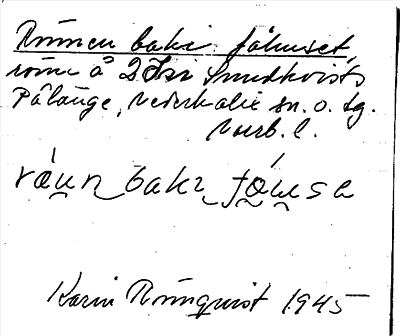 Rönnen baki fähuset,
rönn å 2 Sundkvists
Pålänge, Nederkalix sn. o. tg.
Norrb. l.
ráu̯n baki fǻu̯sə
Karin Rönnqvist 1945